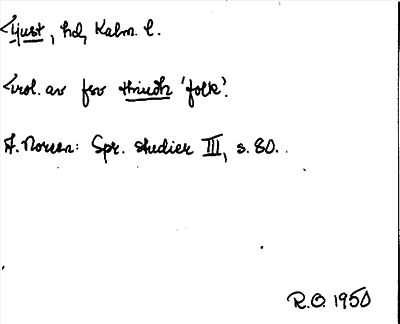 <Ljust, hd, Kalm. l.
<urol. av fsv thiudh 'folk'.
A. Noreen: Spr. studier III, s. 80.
R.O. 1950